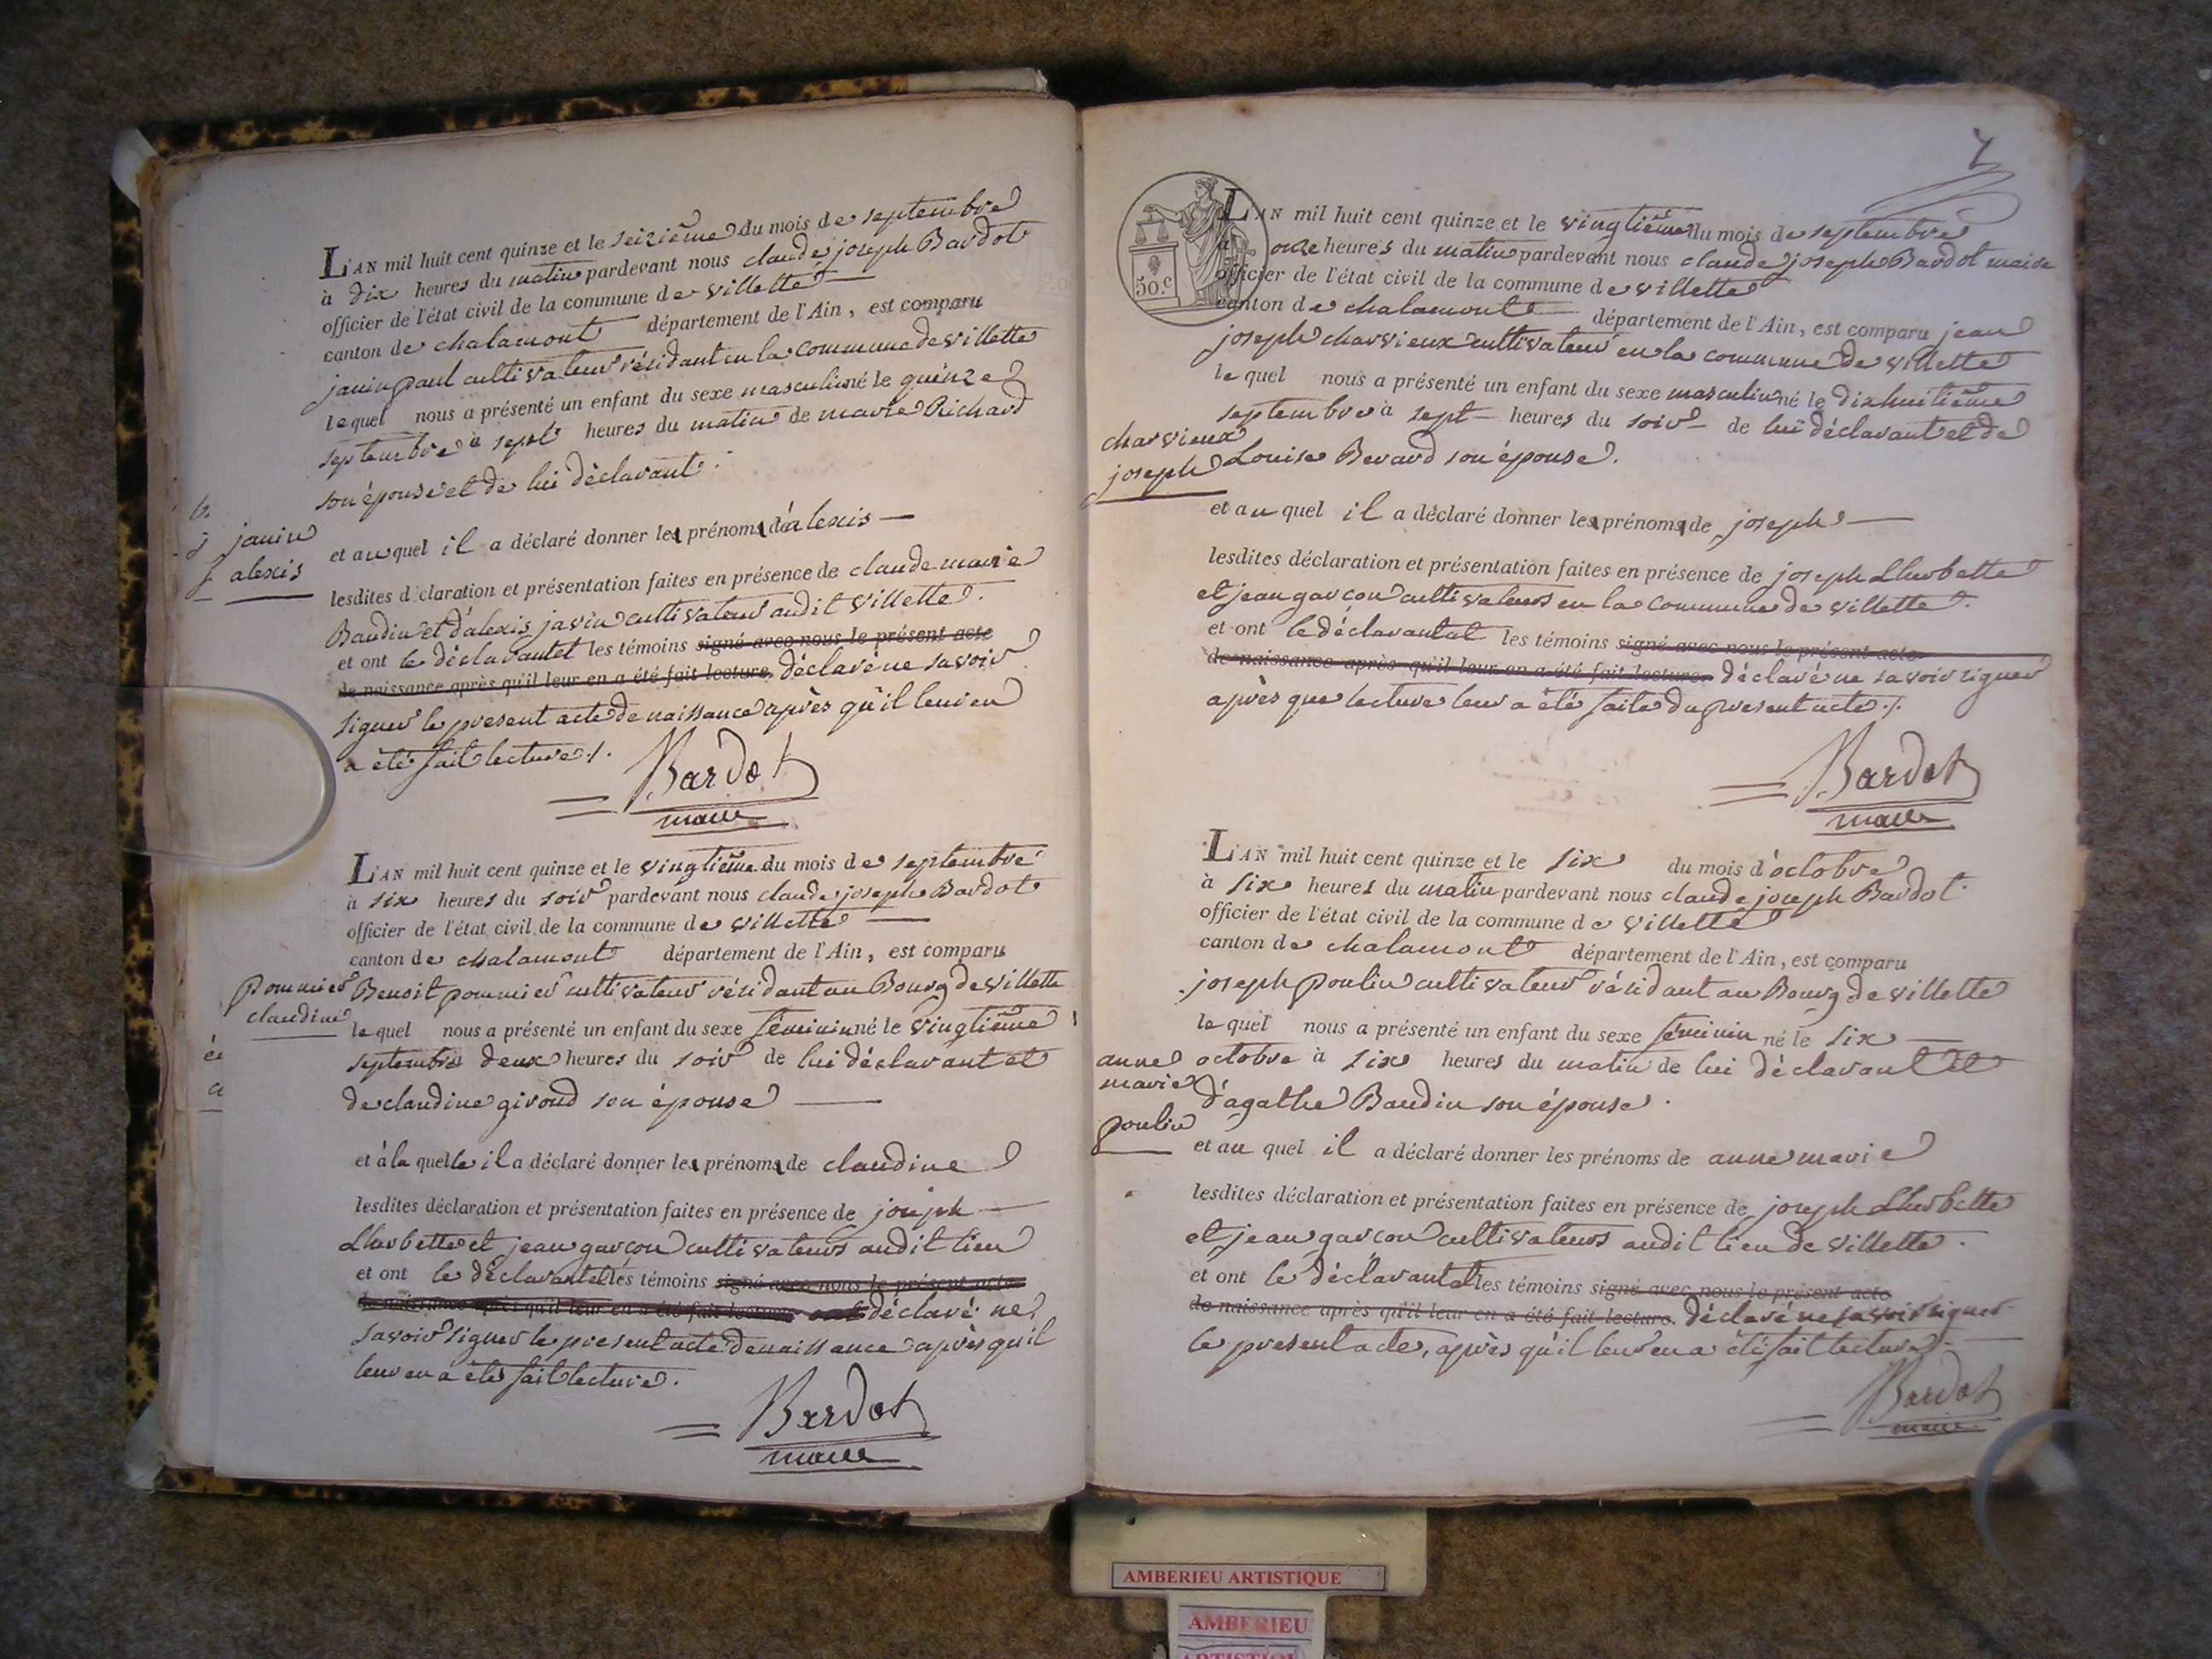 L'AN mil huit cent quinze et le seizième du mois de septembre
à dix heures du matin pardevant nous claude joseph Bardot
officier de l'état civil de la commune de villette
canton de chalamont département de l'Ain, est comparu
janin paul cultivateur résidant en la commune de villette
lequel nous a présenté un enfant du sexe masculin né le quinze
septembre à sept heures du matin de marie Richard
son épouse et de lui déclarant.
janin
alexis
et au quel il a déclaré donner les prénoms d'alexis
lesdites déclaration et présentation faites en présence de claude marie
Baudin et d'alexis javin cultivateur audit villette.
et ont le déclarant et les témoins signé avec nous le présent acte
de naissance après qu'il leur en a été fait lecture. déclaré ne savoir
signer le present acte de naissance après qu'il leur en
a été fait lecture ./.
Bardot
maire
L'AN mil huit cent quinze et le vingtième du mois de septembre
à six heures du soir pardevant nous claude joseph Bardot
officier de l'état civil de la commune de villette
canton de chalamont département de l'Ain, est comparu
pommier
claudine
Benoit pommier cultivateur résidant au Bourg de villette
lequel nous a présenté un enfant du sexe féminin né le vingtième
septembre deux heures du soir de lui déclarant et
de claudine giroud son épouse
et à la quelle il a déclaré donner les prénoms de claudine
lesdites déclaration et présentation faites en présence de joseph
Lherbette et jean garcon cultivateurs audit lieu
et ont le déclarant et les témoins signé avec nous le présent acte
de naissance après qu'il leur en a été fait lecture ont déclaré ne
savoir signer le present acte de naissance après qu'il
leur en a été fait lecture.
Bardot
maire
7
50.c
L'AN mil huit cent quinze et le vingtième du mois de septembre
à onze heures du matin pardevant nous claude joseph Bardot maire
officier de l'état civil de la commune de villette
canton de chalamont département de l'Ain, est comparu jean
joseph charvieux cultivateur en la commune de villette
le quel nous a présenté un enfant du sexe masculin né le dixhuitième
septembre à sept heures du soir de lui déclarant et de
charvieux
joseph
Louise Berard son épouse.
et au quel il a déclaré donner les prénoms de joseph
lesdites déclaration et présentation faites en présence de joseph Lherbette
et jean garcon cultivateurs en la commune de villette.
et ont le déclarant et les témoins signé avec nous le présent acte
de naissance après qu'il leur en a été fait lecture. déclaré ne savoir signer
après que lecture leur a été faite du present acte ./.
Bardot
maire
L'AN mil huit cent quinze et le six du mois d'octobre
à six heures du matin pardevant nous claude joseph Bardot
officier de l'état civil de la commune de villette
canton de chalamont département de l'Ain, est comparu
joseph poulin cultivateur résidant au Bourg de villette
le quel nous a présenté un enfant du sexe féminin né le six
anne
marie
poulin
octobre à six heures du matin de lui déclarant et
d'agathe Baudin son épouse.
et au quel il a déclaré donner les prénoms de anne marie
lesdites déclaration et présentation faites en présence de joseph Lherbette
et jean garcon cultivateurs audit lieu de villette.
et ont le déclarant et les témoins signé avec nous le présent acte
de naissance après qu'il leur en a été fait lecture. déclaré ne savoir signer
le present acte, après qu'il leur en a été fait lecture.
Bardot
maire
AMBERIEU ARTISTIQUE
AMBERIEU
ARTISTIQUE